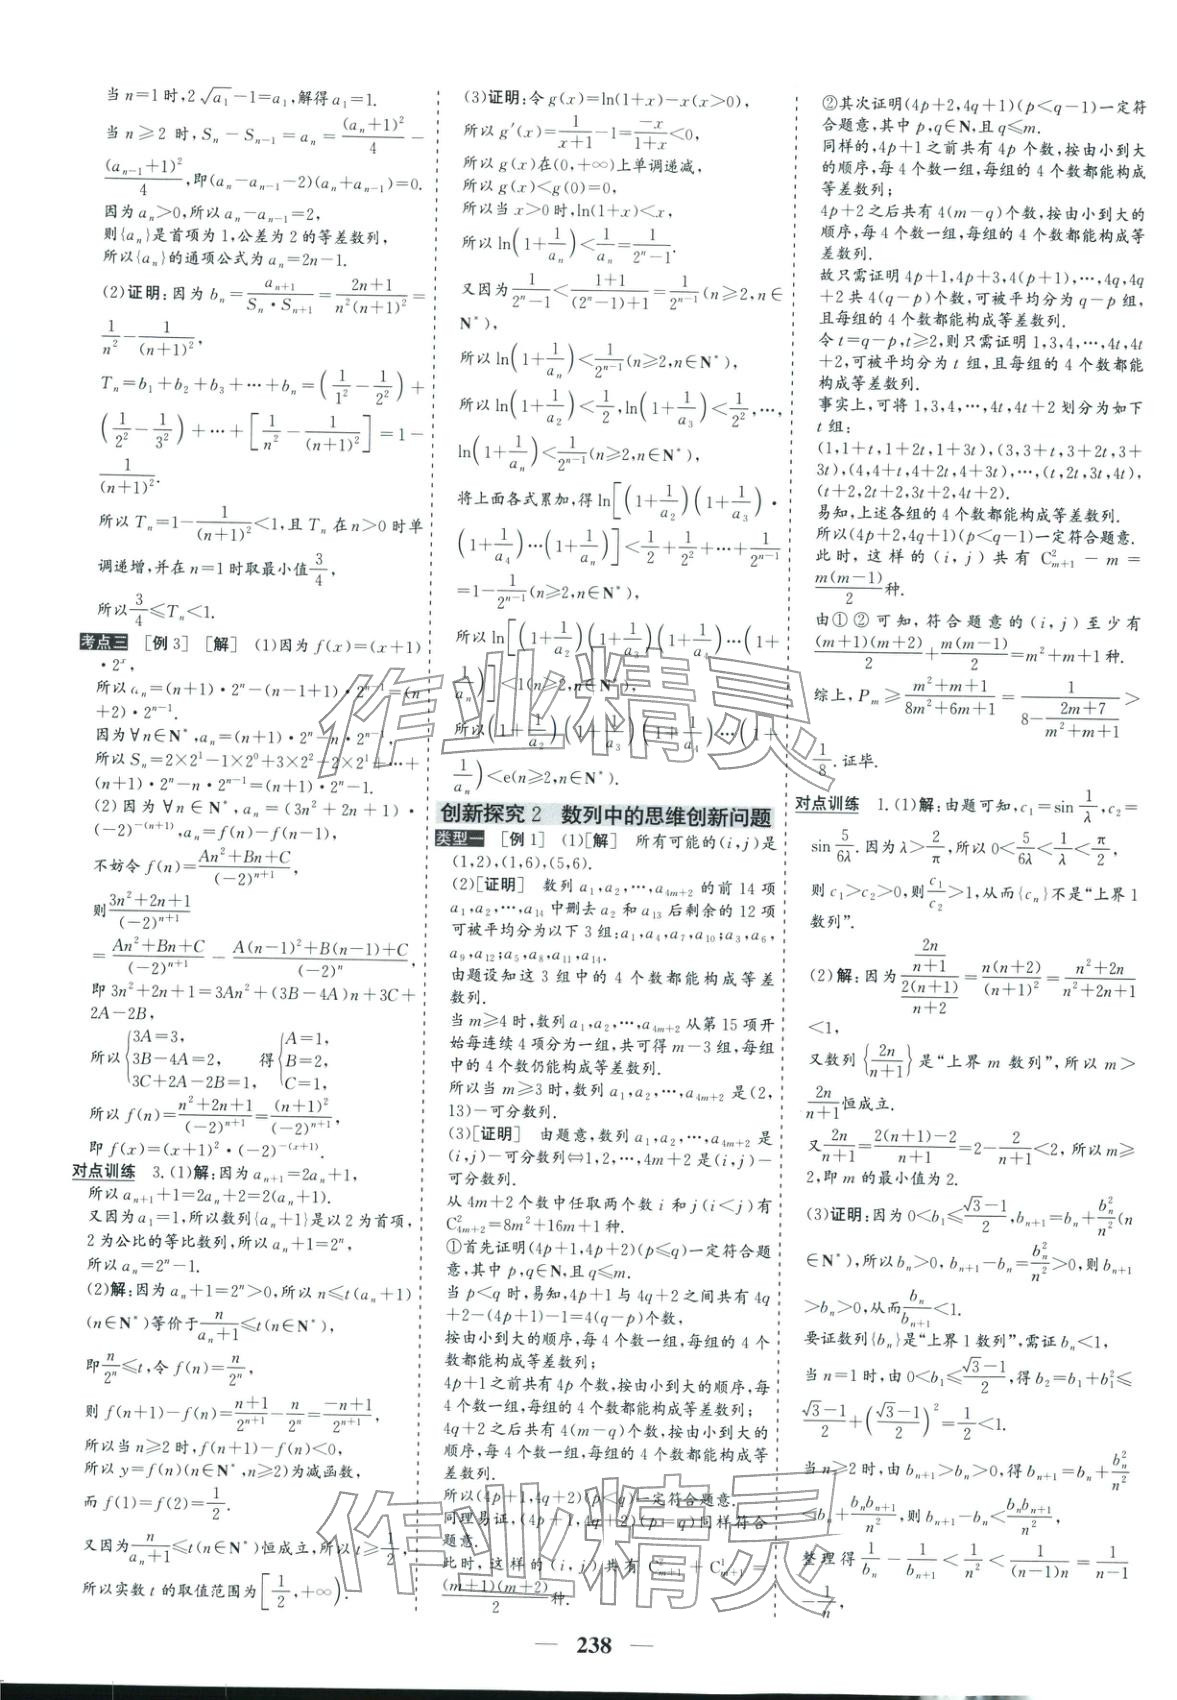 当 n=1 时,2√a₁-1=a₁,解得 a₁=1.
当 n≥2 时,Sₙ-Sₙ₋₁=aₙ=(aₙ+1)²/4-
(aₙ₋₁+1)²/4,即(aₙ-aₙ₋₁-2)(aₙ+aₙ₋₁)=0.
因为 aₙ>0,所以 aₙ-aₙ₋₁=2,
则{aₙ}是首项为 1,公差为 2 的等差数列,
所以{aₙ}的通项公式为 aₙ=2n-1.
(2)证明:因为 bₙ=aₙ₊₁/(Sₙ·Sₙ₊₁)=(2n+1)/(n²(n+1)²)=
1/n²-1/(n+1)²,
Tₙ=b₁+b₂+b₃+…+bₙ=(1/1²-1/2²)+
(1/2²-1/3²)+…+[1/n²-1/(n+1)²]=1-
1/(n+1)².
所以 Tₙ=1-1/(n+1)²<1,且 Tₙ 在 n>0 时单
调递增,并在 n=1 时取最小值3/4,
所以3/4≤Tₙ<1.
考点三 [例 3] [解] (1)因为 f(x)=(x+1)
·2ˣ,
所以 aₙ=(n+1)·2ⁿ-(n-1+1)·2ⁿ⁻¹=(n
+2)·2ⁿ⁻¹.
因为∀n∈N*,aₙ=(n+1)·2ⁿ-n·2ⁿ⁻¹,
所以 Sₙ=2×2¹-1×2⁰+3×2²-2×2¹+…+
(n+1)·2ⁿ-n·2ⁿ⁻¹=(n+1)·2ⁿ-1.
(2)因为 ∀n∈N*,aₙ=(3n²+2n+1)·
(-2)⁻⁽ⁿ⁺¹⁾,aₙ=f(n)-f(n-1),
不妨令 f(n)=(An²+Bn+C)/(-2)ⁿ⁺¹,
则(3n²+2n+1)/(-2)ⁿ⁺¹
=(An²+Bn+C)/(-2)ⁿ⁺¹-(A(n-1)²+B(n-1)+C)/(-2)ⁿ,
即 3n²+2n+1=3An²+(3B-4A)n+3C+
2A-2B,
所以{3A=3, 3B-4A=2, 3C+2A-2B=1, 得{A=1, B=2, C=1,
所以 f(n)=(n²+2n+1)/(-2)ⁿ⁺¹=(n+1)²/(-2)ⁿ⁺¹,
即 f(x)=(x+1)²·(-2)⁻⁽ˣ⁺¹⁾.
对点训练 3.(1)解:因为 aₙ₊₁=2aₙ+1,
所以 aₙ₊₁+1=2aₙ+2=2(aₙ+1).
又因为 a₁=1,所以数列{aₙ+1}是以 2 为首项,
2 为公比的等比数列,所以 aₙ+1=2ⁿ,
所以 aₙ=2ⁿ-1.
(2)解:因为 aₙ+1=2ⁿ>0,所以 n≤t(aₙ+1)
(n∈N*)等价于n/(aₙ+1)≤t(n∈N*),
即n/2ⁿ≤t,令 f(n)=n/2ⁿ,
则 f(n+1)-f(n)=(n+1)/2ⁿ⁺¹-n/2ⁿ=(-n+1)/2ⁿ⁺¹,
所以当 n≥2 时,f(n+1)-f(n)<0,
所以 y=f(n)(n∈N*,n≥2)为减函数,
而 f(1)=f(2)=1/2.
又因为n/(aₙ+1)≤t(n∈N*)恒成立,所以 t≥1/2,
所以实数 t 的取值范围为[1/2,+∞).
(3)证明:令 g(x)=ln(1+x)-x(x>0),
所以 g′(x)=1/(x+1)-1=-x/(1+x)<0,
所以 g(x)在(0,+∞)上单调递减,
所以 g(x)<g(0)=0,
所以当 x>0 时,ln(1+x)<x,
所以 ln(1+1/aₙ)<1/aₙ=1/(2ⁿ-1).
又因为1/(2ⁿ-1)<(1+1)/((2ⁿ-1)+1)=1/2ⁿ⁻¹(n≥2,n∈
N*),
所以 ln(1+1/aₙ)<1/2ⁿ⁻¹(n≥2,n∈N*),
所以 ln(1+1/a₂)<1/2,ln(1+1/a₃)<1/2²,…,
ln(1+1/aₙ)<1/2ⁿ⁻¹(n≥2,n∈N*),
将上面各式累加,得 ln[(1+1/a₂)(1+1/a₃)·
(1+1/a₄)…(1+1/aₙ)]<1/2+1/2²+…+1/2ⁿ⁻¹
=1-1/2ⁿ⁻¹(n≥2,n∈N*),
所以 ln[(1+1/a₂)(1+1/a₃)(1+1/a₄)…(1+
1/aₙ)]<1(n≥2,n∈N*),
所以(1+1/a₂)(1+1/a₃)(1+1/a₄)…(1+
1/aₙ)<e(n≥2,n∈N*).
创新探究 2 数列中的思维创新问题
类型一 [例 1] (1)[解] 所有可能的(i,j)是
(1,2),(1,6),(5,6).
(2)[证明] 数列 a₁,a₂,…,a₄ₘ₊₂ 的前 14 项
a₁,a₂,…,a₁₄ 中删去 a₂ 和 a₁₃ 后剩余的 12 项
可被平均分为以下 3 组:a₁,a₄,a₇,a₁₀;a₃,a₆,
a₉,a₁₂;a₅,a₈,a₁₁,a₁₄.
由题设知这 3 组中的 4 个数都能构成等差
数列.
当 m≥4 时,数列 a₁,a₂,…,a₄ₘ₊₂ 从第 15 项开
始每连续 4 项分为一组,共可得 m-3 组,每组
中的 4 个数仍能构成等差数列.
所以当 m≥3 时,数列 a₁,a₂,…,a₄ₘ₊₂ 是(2,
13)-可分数列.
(3)[证明] 由题意,数列 a₁,a₂,…,a₄ₘ₊₂ 是
(i,j)-可分数列⇔1,2,…,4m+2 是(i,j)-
可分数列.
从 4m+2 个数中任取两个数 i 和 j(i<j)有
C²₄ₘ₊₂=8m²+16m+1 种.
①首先证明(4p+1,4p+2)(p≤q)一定符合题
意,其中 p,q∈N,且 q≤m.
当 p<q 时,易知,4p+1 与 4q+2 之间共有 4q
+2-(4p+1)-1=4(q-p)个数,
按由小到大的顺序,每 4 个数一组,每组的 4 个
数都能构成等差数列;
4p+1 之前共有 4p 个数,按由小到大的顺序,每
4 个数一组,每组的 4 个数都能构成等差数列;
4q+2 之后共有 4(m-q)个数,按由小到大的
顺序,每 4 个数一组,每组的 4 个数都能构成等
差数列.
所以(4p+1,4q+2)(p<q)一定符合题意.
同理易证,(4p+1,4q+2)(p=q)同样符合
题意.
此时,这样的(i,j)共有 C²ₘ₊₁+C¹ₘ₊₁=
(m+1)(m+2)/2种.
②其次证明(4p+2,4q+1)(p<q-1)一定符
合题意,其中 p,q∈N,且 q≤m.
同样的,4p+1 之前共有 4p 个数,按由小到大
的顺序,每 4 个数一组,每组的 4 个数都能构成
等差数列;
4p+2 之后共有 4(m-q)个数,按由小到大的
顺序,每 4 个数一组,每组的 4 个数都能构成等
差数列.
故只需证明 4p+1,4p+3,4(p+1),…,4q,4q
+2 共 4(q-p)个数,可被平均分为 q-p 组,
且每组的 4 个数都能构成等差数列.
令 t=q-p,t≥2,则只需证明 1,3,4,…,4t,4t
+2,可被平均分为 t 组,且每组的 4 个数都能
构成等差数列.
事实上,可将 1,3,4,…,4t,4t+2 划分为如下
t 组:
(1,1+t,1+2t,1+3t),(3,3+t,3+2t,3+
3t),(4,4+t,4+2t,4+3t),…,(t,2t,3t,4t),
(t+2,2t+2,3t+2,4t+2).
易知,上述各组的 4 个数都能构成等差数列.
所以(4p+2,4q+1)(p<q-1)一定符合题意.
此时,这样的(i,j)共有 C²ₘ₊₁-m=
m(m-1)/2种.
由①②可知,符合题意的(i,j)至少有
(m+1)(m+2)/2+m(m-1)/2=m²+m+1 种.
综上,Pₘ≥(m²+m+1)/(8m²+6m+1)=1/(8-(2m+7)/(m²+m+1))>
1/8. 证毕.
对点训练 1.(1)解:由题可知,c₁=sin 1/λ,c₂=
sin 5/6λ.因为 λ>2/π,所以 0<5/6λ<1/λ<π/2,
则 c₁>c₂>0,则c₁/c₂>1,从而{cₙ}不是“上界 1
数列”.
(2)解:因为(2n/(n+1))/(2(n+1)/(n+2))=n(n+2)/(n+1)²=(n²+2n)/(n²+2n+1)
<1,
又数列{2n/(n+1)}是“上界 m 数列”,所以 m>
2n/(n+1)恒成立.
又2n/(n+1)=(2(n+1)-2)/(n+1)=2-2/(n+1)<2,所以 m≥
2,即 m 的最小值为 2.
(3)证明:因为 0<b₁≤(√3-1)/2,bₙ₊₁=bₙ+bₙ²/n²(n
∈N*),所以 bₙ>0,bₙ₊₁-bₙ=bₙ²/n²>0,则 bₙ₊₁
>bₙ>0,从而bₙ/bₙ₊₁<1.
要证数列{bₙ}是“上界 1 数列”,需证 bₙ<1,
当 n=1 时,由 0<b₁≤(√3-1)/2,得 b₂=b₁+b₁²≤
(√3-1)/2+((√3-1)/2)²=1/2<1.
当 n≥2 时,由 bₙ₊₁>bₙ>0,得 bₙ₊₁=bₙ+bₙ²/n²
<bₙ+bₙbₙ₊₁/n²,则 bₙ₊₁-bₙ<bₙbₙ₊₁/n²,
整理得1/bₙ-1/bₙ₊₁<1/n²<1/((n-1)n)=1/(n-1)
-1/n,
作业精灵
作业精灵
— 238 —